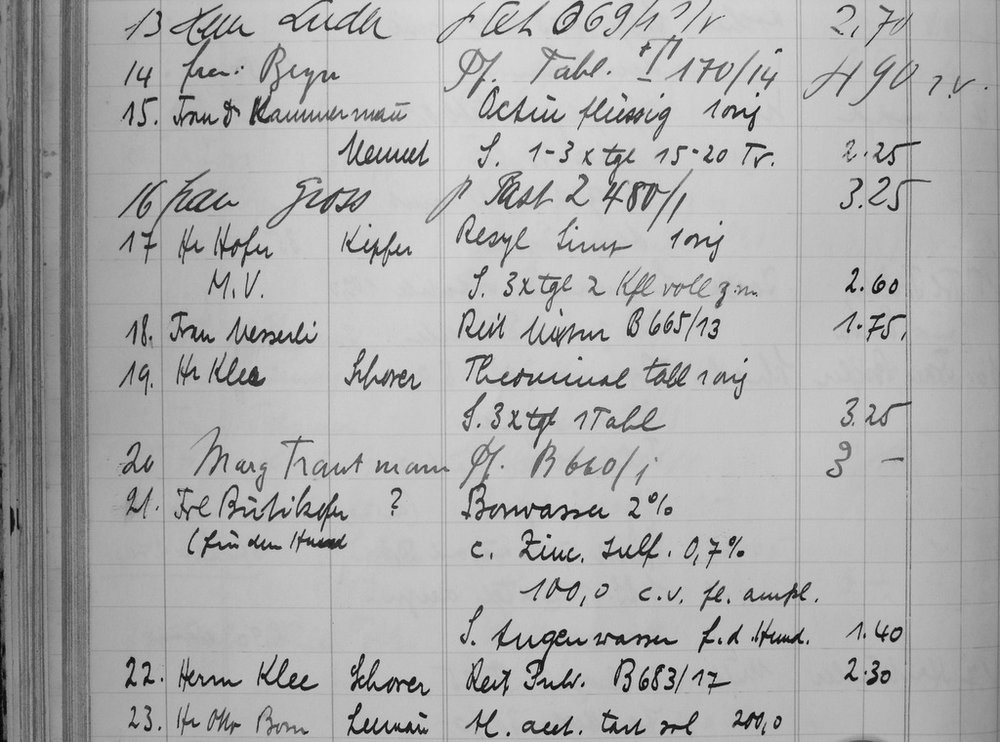 13 Herr 069/1 2.70
14 Frau Tabl. 170/14 4 90 r.v.
15. Frau Dr Kammermann flüssig 1 orig
S. 1-3 x tgl 15-20 Tr. 2.25
16 Frau Gross p Past 2 480/1 3.25
17 Hr Hofer Kipfer Resyl Sirup 1 orig
M.V. S. 3 x tgl 2 Kfl voll z.n. 2.60
18. Frau Messerli Reit B 665/13 1.75.
19. Hr Klee Schorer Theominal tabl 1 orig
S. 3 x tgl 1 Tabl 3.25
20 Marg Trautmann B 660/1 3 —
21. Frl Bütikofer ? Borwasser 2%
(für den Hund c. Zinc. sulf. 0,7%
100,0 c.v. fl. ampl.
S. Augenwasser f.d. Hund. 1.40
22. Herrn Klee Schorer Reit Pulv. B 683/17 2.30
23. Hr Born acet. tart sol 200,0